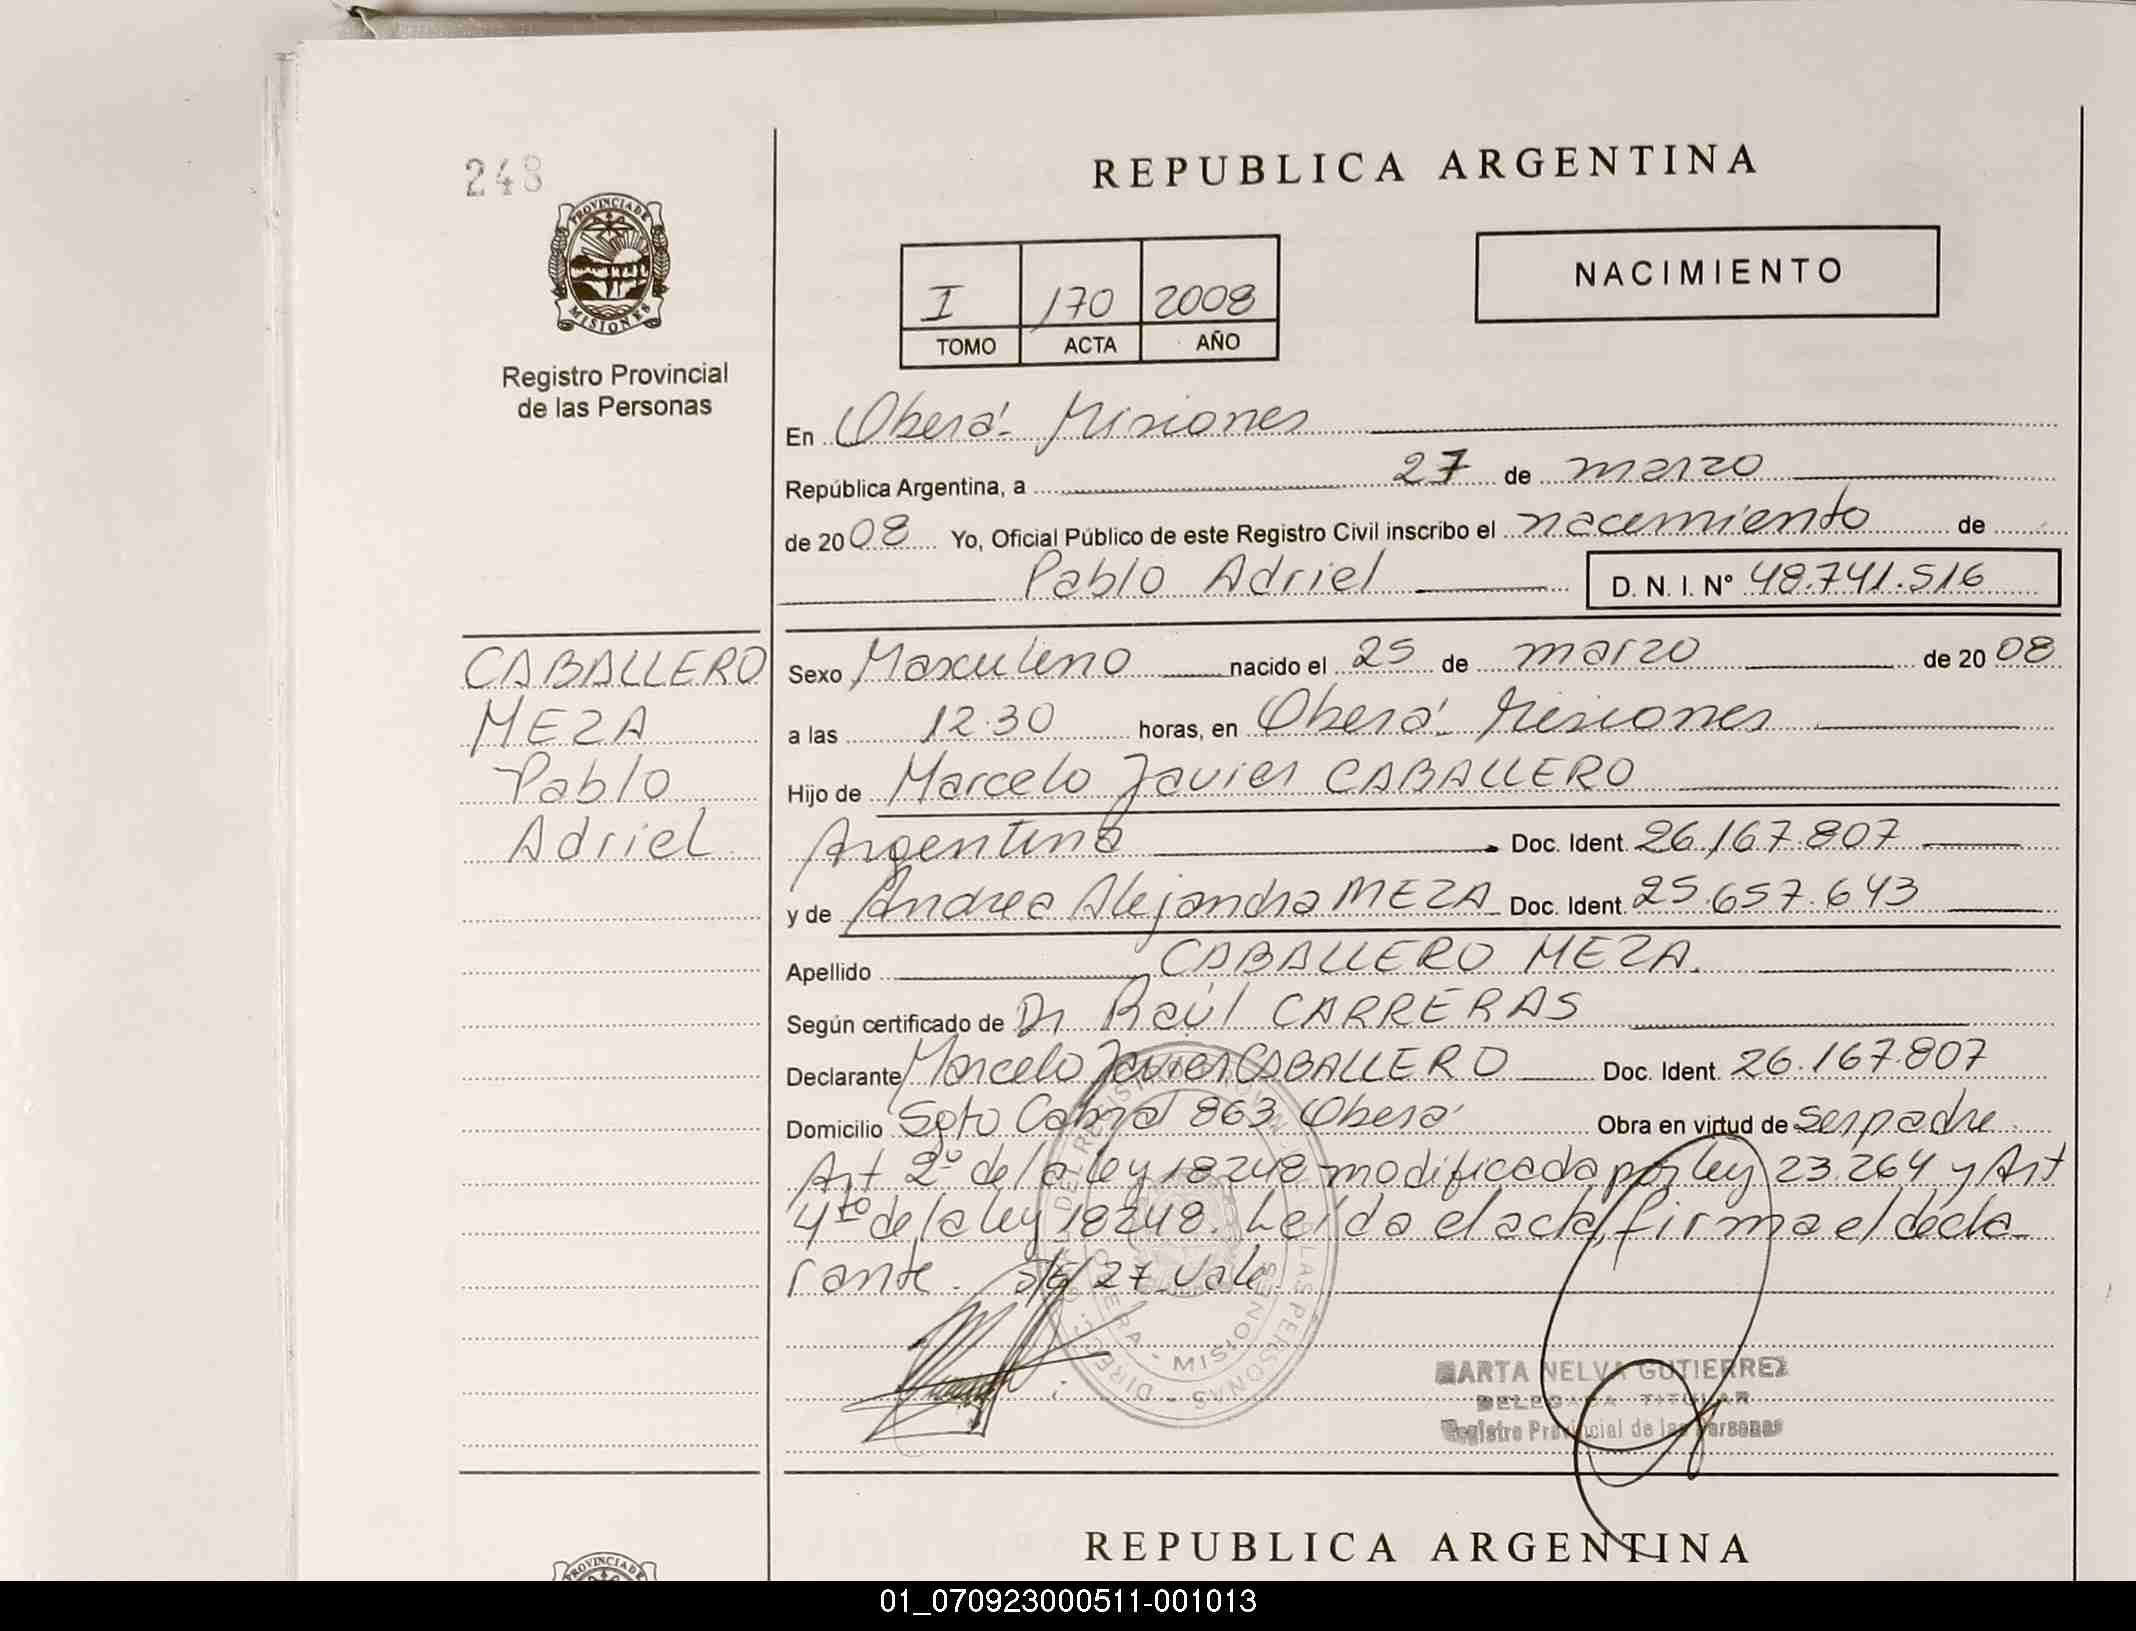 248
PROVINCIA DE
MISIONES
Registro Provincial
de las Personas
CABALLERO
MEZA
Pablo
Adriel
REPUBLICA ARGENTINA
I 170 2008
TOMO ACTA AÑO
NACIMIENTO
En Oberá - Misiones
República Argentina, a 27 de marzo
de 2008 Yo, Oficial Público de este Registro Civil inscribo el nacimiento de
Pablo Adriel D. N. I. Nº 48.741.516
Sexo Masculino nacido el 25 de marzo de 2008
a las 12.30 horas, en Oberá - Misiones
Hijo de Marcelo Javier CABALLERO
Argentina Doc. Ident. 26.167.807
y de Andrea Alejandra MEZA Doc. Ident. 25.657.643
Apellido CABALLERO MEZA.
Según certificado de Dr Raúl CARRERAS
Declarante Marcelo Javier CABALLERO Doc. Ident. 26.167.807
Domicilio Sgto Cabral 863 Oberá Obra en virtud de ser padre.
Art 2º de la ley 18248 modificada por ley 23.264 y Art
4to de la ley 18248. Leída el acta, firma el decla-
rante. S/E/ 27 Vale.
MISIONES
MARTA NELVA GUTIERREZ
DELEGADA TITULAR
Registro Provincial de las Personas
REPUBLICA ARGENTINA
PROVINCIA DE
01_070923000511-001013